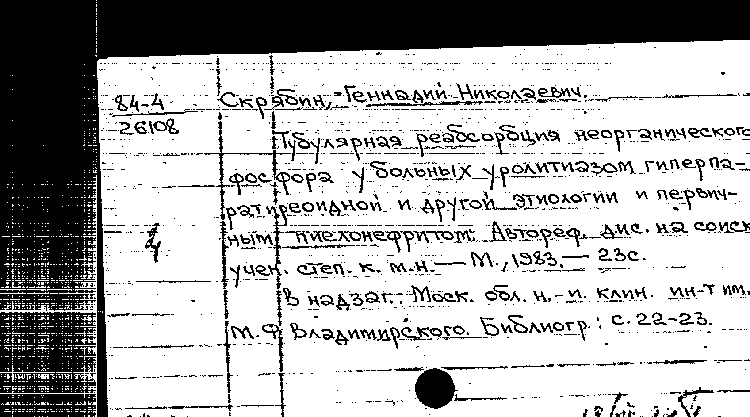 84-4
26108
Скрябин, Геннадий Николаевич.
Тубулярная реабсорбция неорганического
фосфора у больных уролитиазом гиперпа-
ратиреоидной и другой этиологии и первич-
ным пиелонефритом: Автореф. дис. на соиск
учен. степ. к. м.н. — М., 1983. — 23с.
В надзаг.: Моск. обл. н.-и. клин. ин-т им.
М.Ф. Владимирского. Библиогр.: с. 22-23.